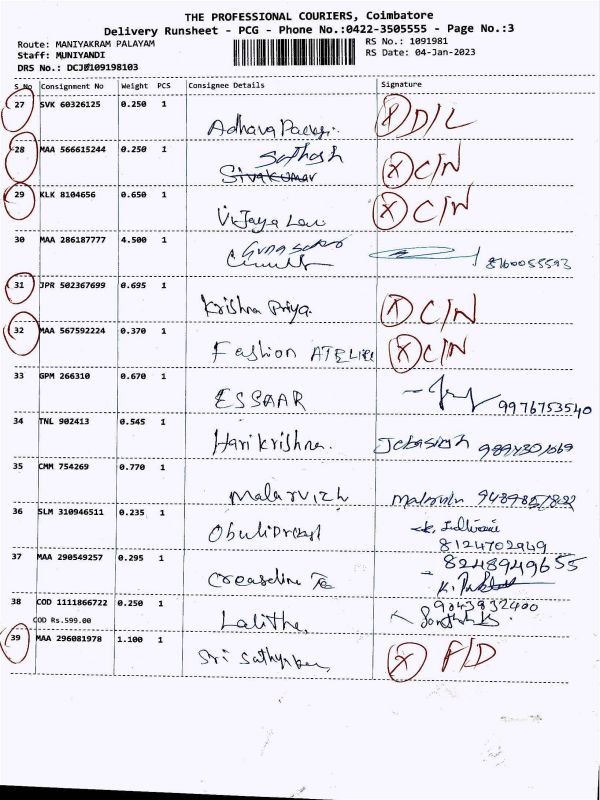 THE PROFESSIONAL COURIERS, Coimbatore
Delivery Runsheet - PCG - Phone No.:0422-3505555 - Page No.:3
Route: MANIYAKRAM PALAYAM RS No.: 1091981
Staff: MUNIYANDI RS Date: 04-Jan-2023
DRS No.: DCJ0109198103
S No Consignment No Weight PCS Consignee Details Signature
27 SVK 60326125 0.250 1
X D/L
28 MAA 566615244 0.250 1 Sathosh
Sivakumar X C/N
29 KLK 8104656 0.650 1
Vijaya X C/N
30 MAA 286187777 4.500 1
8760055593
31 JPR 502367699 0.695 1
Krishna Priya. X C/N
32 MAA 567592224 0.370 1
Fashion ATELIER X C/N
33 GPM 266310 0.670 1
ESSAAR 9976753540
34 TNL 902413 0.545 1
Harikrishna. Jebasingh
35 CMM 754269 0.770 1
Malarvizh
36 SLM 310946511 0.235 1
8124702949
37 MAA 290549257 0.295 1 8248949655
38 COD 1111866722 0.250 1 9043832400
COD Rs.599.00 Lalitha
39 MAA 296081978 1.100 1
Sri X F/D